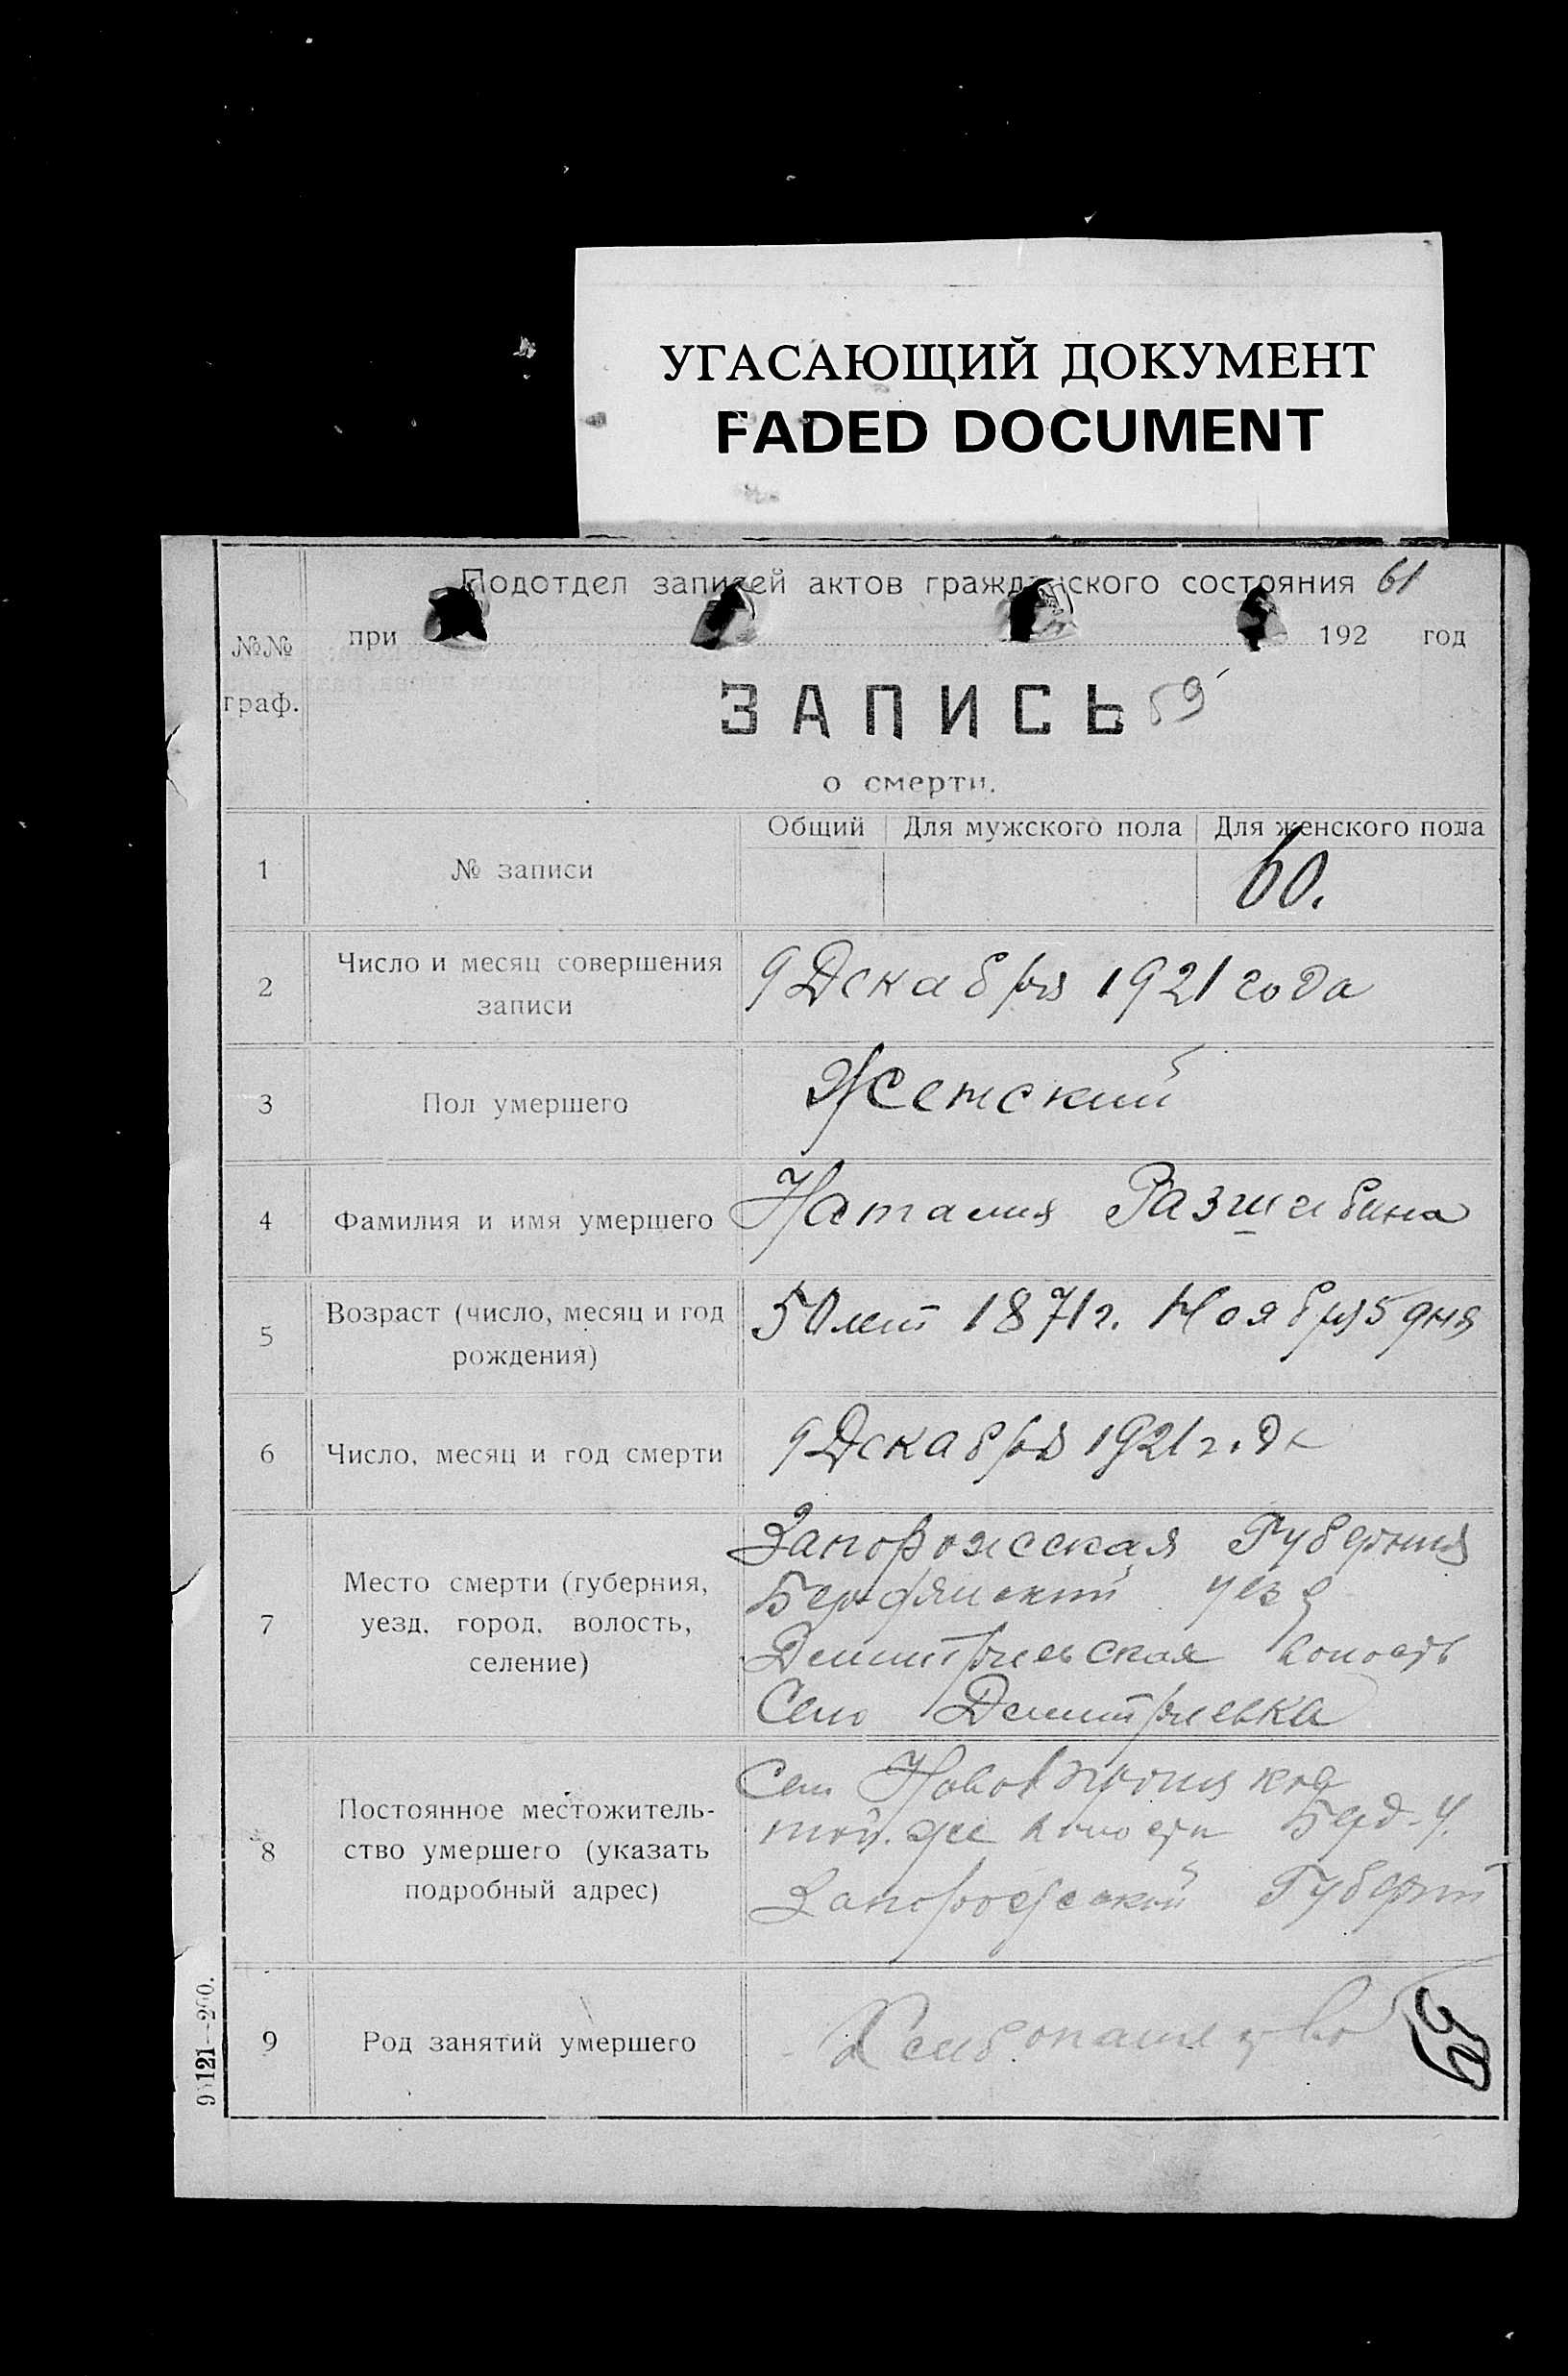 УГАСАЮЩИЙ ДОКУМЕНТ
FADED DOCUMENT
Подотдел записей актов гражданского состояния 61
при 192 год
№№
граф.
ЗАПИСЬ 59
о смерти.
Общий Для мужского пола Для женского пола
1 № записи 60.
2 Число и месяц совершения
записи
9 Декабря 1921 года
3 Пол умершего Женский
4 Фамилия и имя умершего Наталия
5 Возраст (число, месяц и год
рождения)
50 лет 1871 г. Ноября 5 дня
6 Число, месяц и год смерти 9 Декабря 1921 г.
7 Место смерти (губерния,
уезд, город, волость,
селение)
Запорожская Губерния
Бердянский уезд
Дмитриевская волость
Село Дмитриевка
8 Постоянное местожитель-
ство умершего (указать
подробный адрес)
Село
той же волости Берд. у.
Запорожской Губернии
9 Род занятий умершего Хлебопашество
59